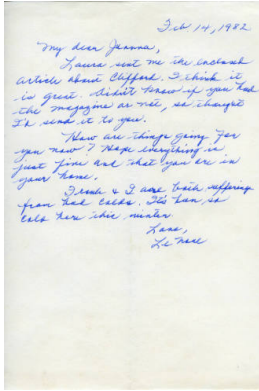 Feb 14, 1982
My dear Joanna,
Laura sent me the enclosed
article about Clifford. I think it
is great. Didn't know if you had
the magazine or not, so thought
I'd send it to you.
How are things going for
you now? Hope everything is
just fine and that you are in
your home.
Frank & I are both suffering
from bad colds. It's been so
cold here this winter.
Love,